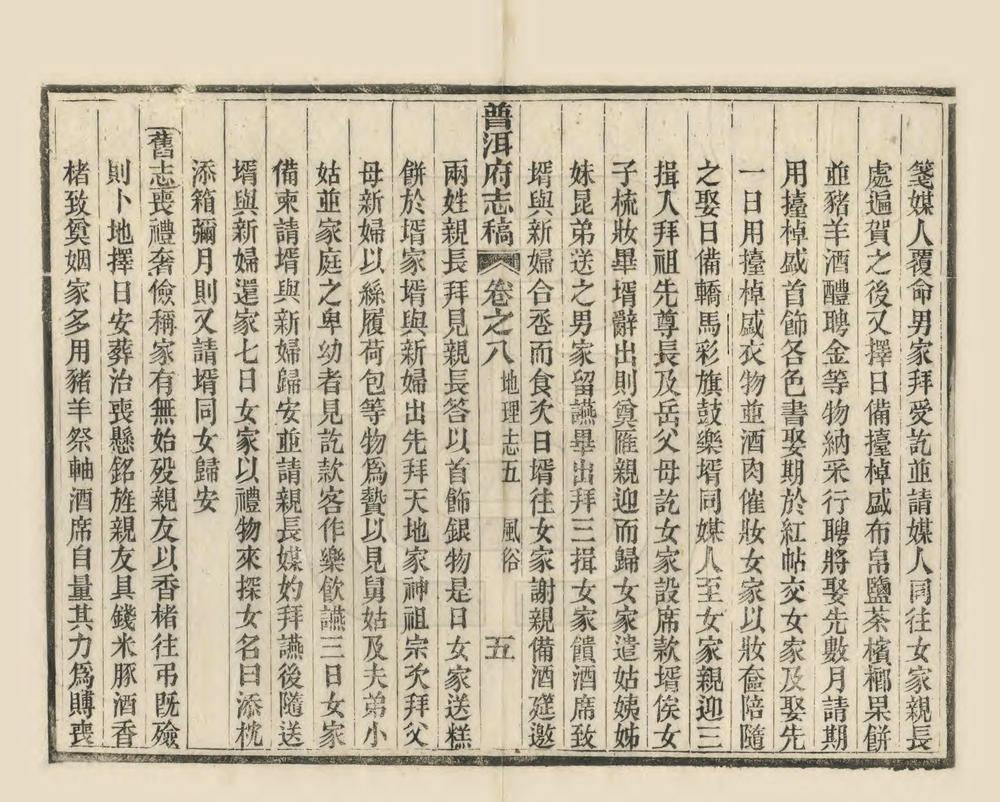 箋媒人覆命男家拜受訖並請媒人同往女家親長
處遍賀之後又擇日備擡棹盛布帛鹽茶檳榔果餅
並豬羊酒醴聘金等物納采行聘將娶先數月請期
用擡棹盛首飾各色書娶期於紅帖交女家及娶先
一日用擡棹盛衣物並酒肉催妝女家以妝奩陪隨
之娶日備轎馬彩旗鼓樂壻同媒人至女家親迎三
揖入拜祖先尊長及岳父母訖女家設席款壻俟女
子梳妝畢壻辭出則奠雁親迎而歸女家遣姑姨姊
妹昆弟送之男家留讌畢出拜三揖女家饋酒席致
壻與新婦合卺而食次日壻往女家謝親備酒筵邀
普洱府志稿 卷之八 地理志五 風俗 五
兩姓親長拜見親長答以首飾銀物是日女家送糕
餅於壻家壻與新婦出先拜天地家神祖宗次拜父
母新婦以絲履荷包等物爲贄以見舅姑及夫弟小
姑並家庭之卑幼者見訖款客作樂飲讌三日女家
備柬請壻與新婦歸安並請親長媒妁拜讌後隨送
壻與新婦還家七日女家以禮物來探女名曰添枕
添箱彌月則又請壻同女歸安
舊志喪禮奢儉稱家有無始歿親友以香楮往弔既殮
則卜地擇日安葬治喪懸銘旌親友具錢米豚酒香
楮致奠姻家多用豬羊祭軸酒席自量其力爲賻喪